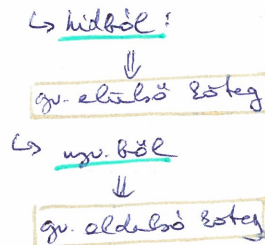 ↳ hídból:
⇓
gv. elülső köteg
↳ nyv. ből
⇓
gv. oldalsó köteg